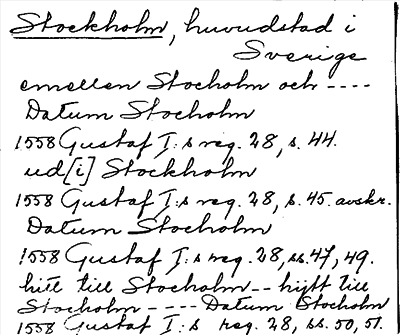 Stockholm, huvudstad i
Sverige
emellen Stocholm och ----
Datum Stocholm
1558 Gustaf I:s reg. 28, s. 44.
ud[i] Stockholm
1558 Gustaf I:s reg. 28, s. 45. avskr.
Datum Stocholm
1558 Gustaf I:s reg. 28, ss. 47, 49.
hitt till Stocholm -- hijtt till
Stocholm ---- Datum Stocholm
1558 Gustaf I:s reg. 28, ss. 50, 51.